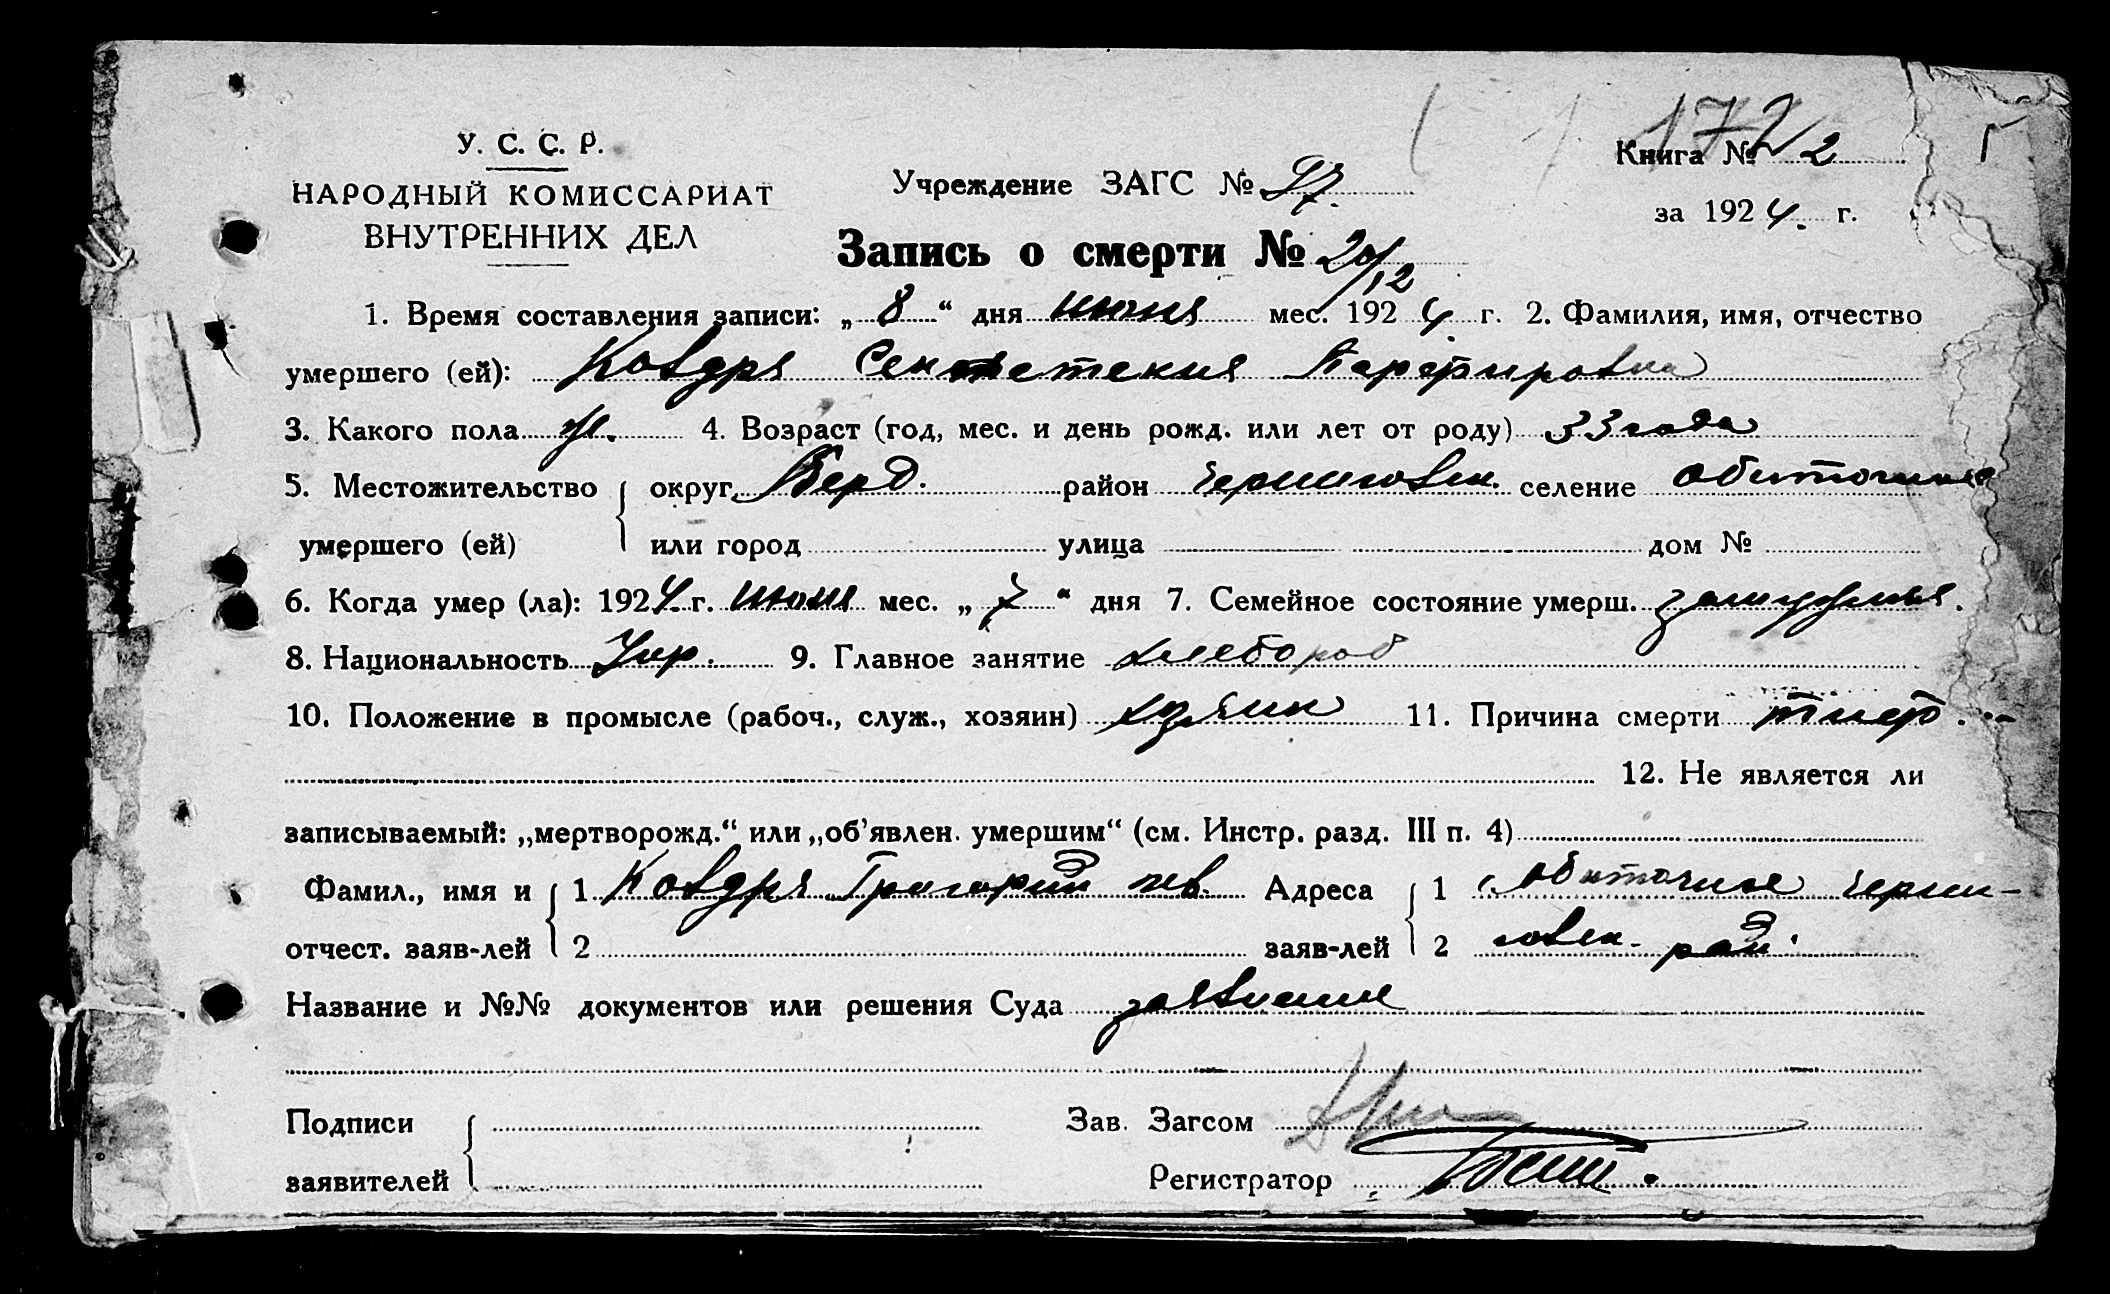 172
У. С. С. Р.
НАРОДНЫЙ КОМИССАРИАТ
ВНУТРЕННИХ ДЕЛ
Учреждение ЗАГС № 27.
Книга № 2
за 1924. г.
Запись о смерти № 20/12
1. Время составления записи: „ 8 “ дня июня мес. 1924 г. 2. Фамилия, имя, отчество
умершего (ей): Ковдря Порфировна
3. Какого пола ж. 4. Возраст (год, мес. и день рожд. или лет от роду) 33 года
5. Местожительство округ Берд. район Черниговск. селение Обиточное
умершего (ей) или город улица дом №
6. Когда умер (ла): 1924 г. июня мес. „ 7 “ дня 7. Семейное состояние умерш. замужняя.
8. Национальность Укр. 9. Главное занятие хлебороб
10. Положение в промысле (рабоч., служ., хозяин) хозяин 11. Причина смерти тиф.
12. Не является ли
записываемый: „мертворожд.“ или „об’явлен. умершим“ (см. Инстр. разд. III п. 4)
Фамил., имя и 1 Ковдря Григорий Адреса 1 с. Обиточное Черни-
отчест. заяв-лей 2 заяв-лей 2 говск. рай.
Название и №№ документов или решения Суда заявление
Подписи Зав. Загсом
заявителей Регистратор